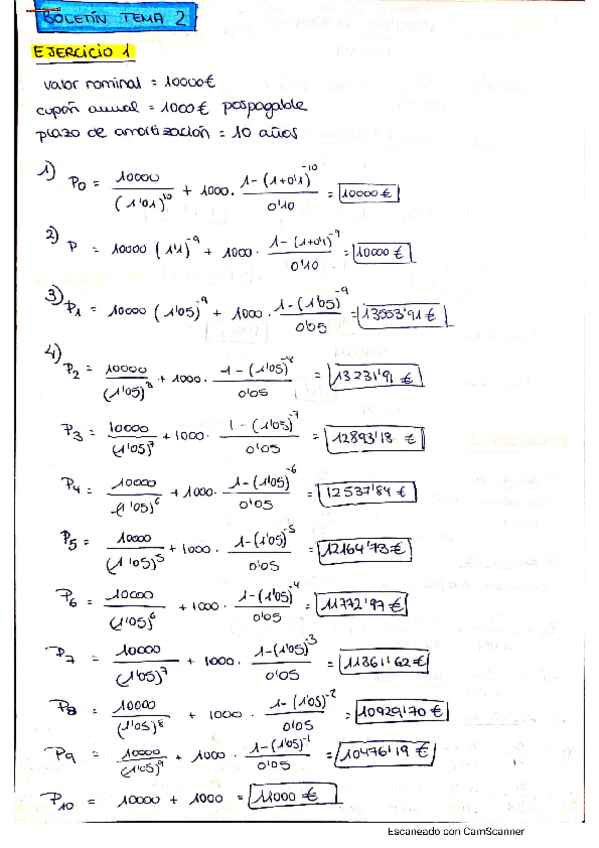 BOLETÍN TEMA 2
EJERCICIO 1
valor nominal = 10000€
cupón anual = 1000€ pospagable
plazo de amortización = 10 años
1) P0 = 10000 / (1'01)^10 + 1000 · 1-(1+0'1)^-10 / 0'10 = 10000€
2) P = 10000 (1'1)^-9 + 1000 · 1-(1+0'1)^-9 / 0'10 = 10000€
3) P1 = 10000 (1'05)^-9 + 1000 · 1-(1'05)^-9 / 0'05 = 13553'91€
4) P2 = 10000 / (1'05)^8 + 1000 · 1-(1'05)^-8 / 0'05 = 13231'91 €
P3 = 10000 / (1'05)^7 + 1000 · 1-(1'05)^-7 / 0'05 = 12893'18 €
P4 = 10000 / (1'05)^6 + 1000 · 1-(1'05)^-6 / 0'05 = 12537'84 €
P5 = 10000 / (1'05)^5 + 1000 · 1-(1'05)^-5 / 0'05 = 12164'73€
P6 = 10000 / (1'05)^6 + 1000 · 1-(1'05)^-4 / 0'05 = 11772'97 €
P7 = 10000 / (1'05)^7 + 1000 · 1-(1'05)^-3 / 0'05 = 11361'62€
P8 = 10000 / (1'05)^8 + 1000 · 1-(1'05)^-2 / 0'05 = 10929'70€
P9 = 10000 / (1'05)^9 + 1000 · 1-(1'05)^-1 / 0'05 = 10476'19 €
P10 = 10000 + 1000 = 11000 €
Escaneado con CamScanner